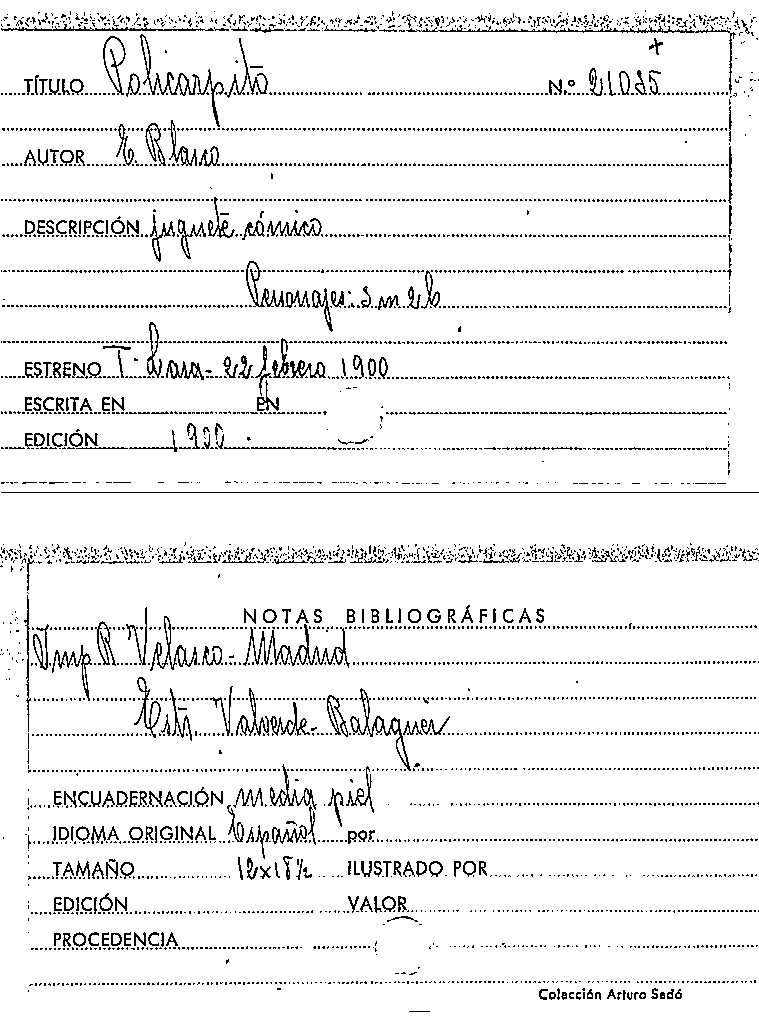 +
TÍTULO Policarpito N.º 21035
AUTOR E. Blasco
DESCRIPCIÓN juguete cómico
Personajes: 3 m 2 h
ESTRENO T. Lara - 22 febrero 1900
ESCRITA EN EN
EDICIÓN 1900
NOTAS BIBLIOGRÁFICAS
Imp R Velasco - Madrid
Estr. Valverde - Balaguer
ENCUADERNACIÓN media piel
IDIOMA ORIGINAL Español por
TAMAÑO 12x18½ ILUSTRADO POR
EDICIÓN VALOR
PROCEDENCIA
Colección Arturo Sedó